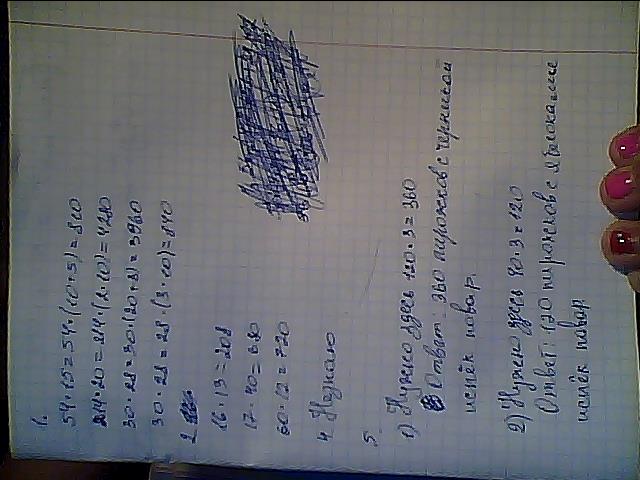 1.
54·15=54·(10+5)=810
214·20=214·(2·10)=4280
30·28=30·(20+8)=3960
30·28=28·(3·10)=840
2
16·13=208
17·40=680
60·12=720
4 Незнаю
5.
1) Нужно здесь 120·3=360
Ответ: 360 пирожков с черникой
испёк повар.
2) Нужно здесь 40·3=120
Ответ: 120 пирожков с яблоками
испёк повар